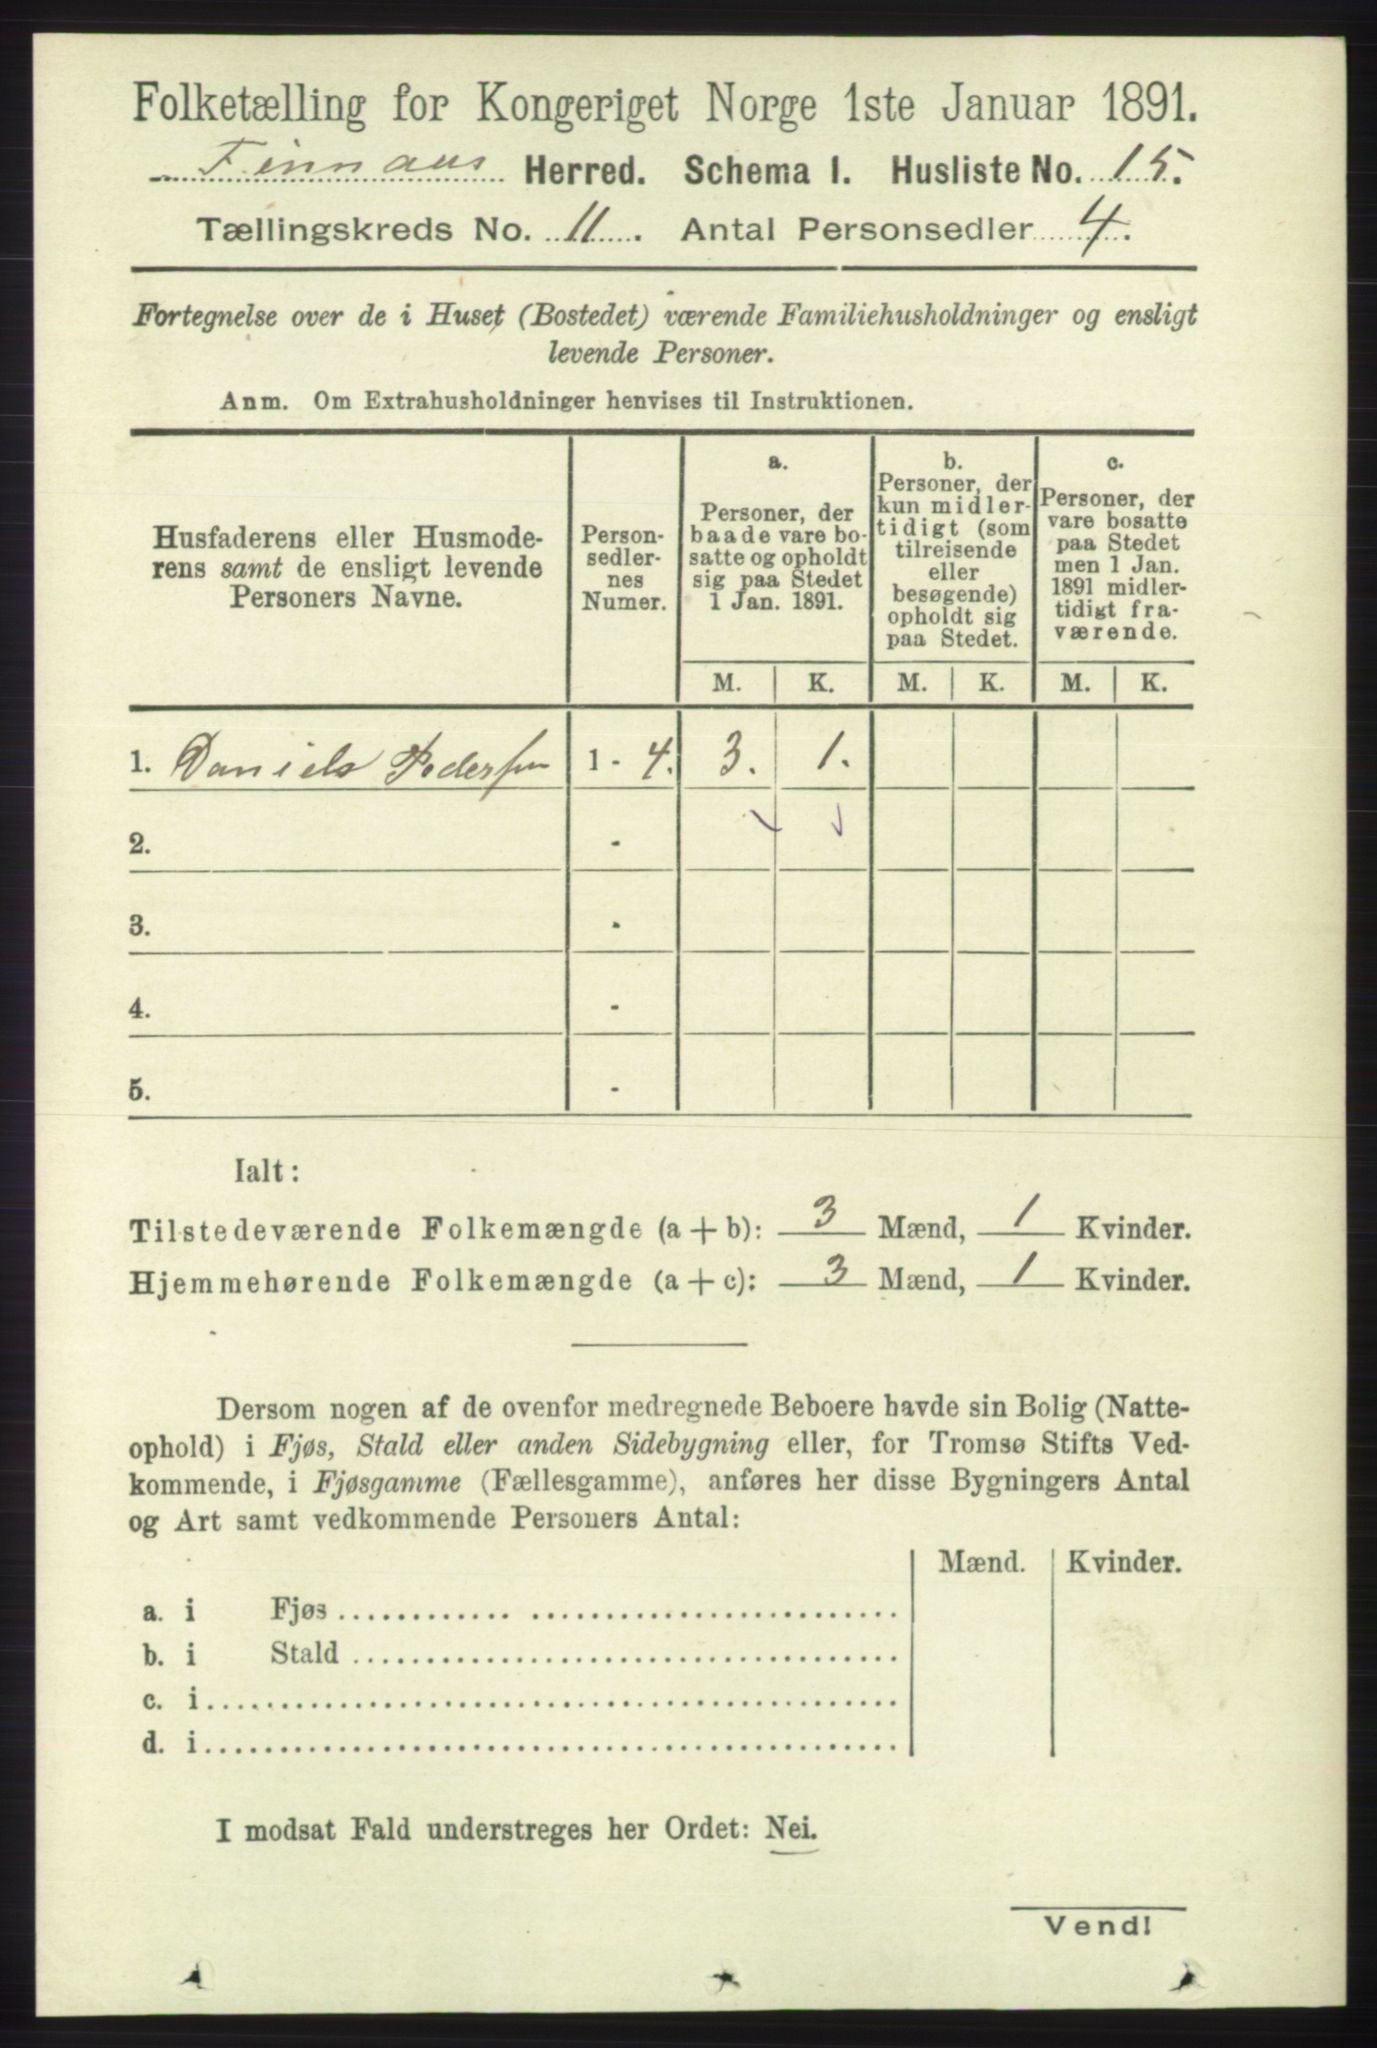 Folketælling for Kongeriget Norge 1ste Januar 1891.
Finnaas Herred. Schema I. Husliste No. 15.
Tællingskreds No. 11. Antal Personsedler 4.
Fortegnelse over de i Huset (Bostedet) værende Familiehusholdninger og ensligt
levende Personer.
Anm. Om Extrahusholdninger henvises til Instruktionen.
Husfaderens eller Husmode-
rens samt de ensligt levende
Personers Navne.
Person-
sedler-
nes
Numer.
a.
Personer, der
baade vare bo-
satte og opholdt
sig paa Stedet
1 Jan. 1891.
b.
Personer, der
kun midler-
tidigt (som
tilreisende
eller
besøgende)
opholdt sig
paa Stedet.
c.
Personer, der
vare bosatte
paa Stedet
men 1 Jan.
1891 midler-
tidigt fra-
værende.
M. K. M. K. M. K.
1. Daniels Pedersen 1 - 4. 3. 1.
2. -
3. -
4. -
5. -
Ialt:
Tilstedeværende Folkemængde (a + b): 3 Mænd, 1 Kvinder.
Hjemmehørende Folkemængde (a + c): 3 Mænd, 1 Kvinder.
Dersom nogen af de ovenfor medregnede Beboere havde sin Bolig (Natte-
ophold) i Fjøs, Stald eller anden Sidebygning eller, for Tromsø Stifts Ved-
kommende, i Fjøsgamme (Fællesgamme), anføres her disse Bygningers Antal
og Art samt vedkommende Personers Antal:
Mænd. Kvinder.
a. i Fjøs
b. i Stald
c. i
d. i
I modsat Fald understreges her Ordet: Nei.
Vend!